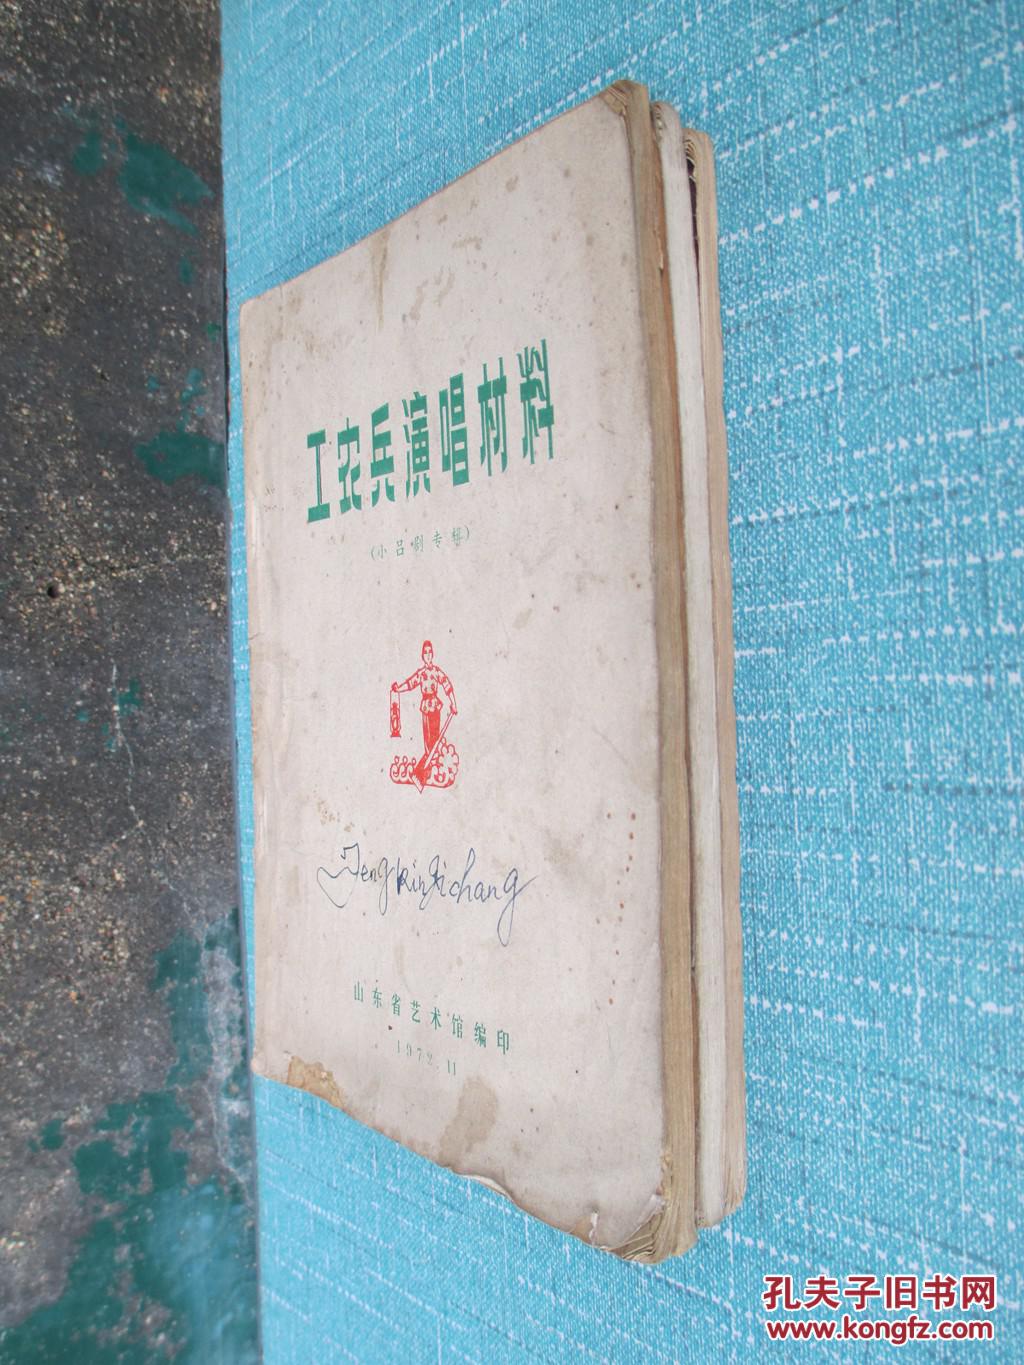 工农兵演唱材料
(小吕剧专辑)
山东省艺术馆编印
1972.11
孔夫子旧书网
www.kongfz.com